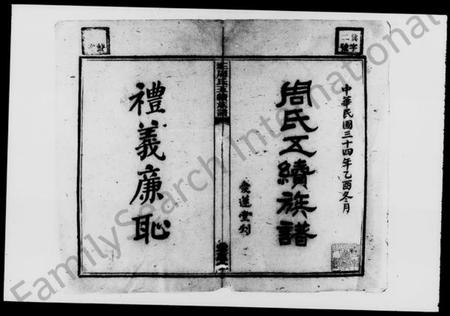 中華民國三十四年乙酉冬月
周氏五續族譜
愛蓮堂刻
禮義廉恥
FamilySearch International